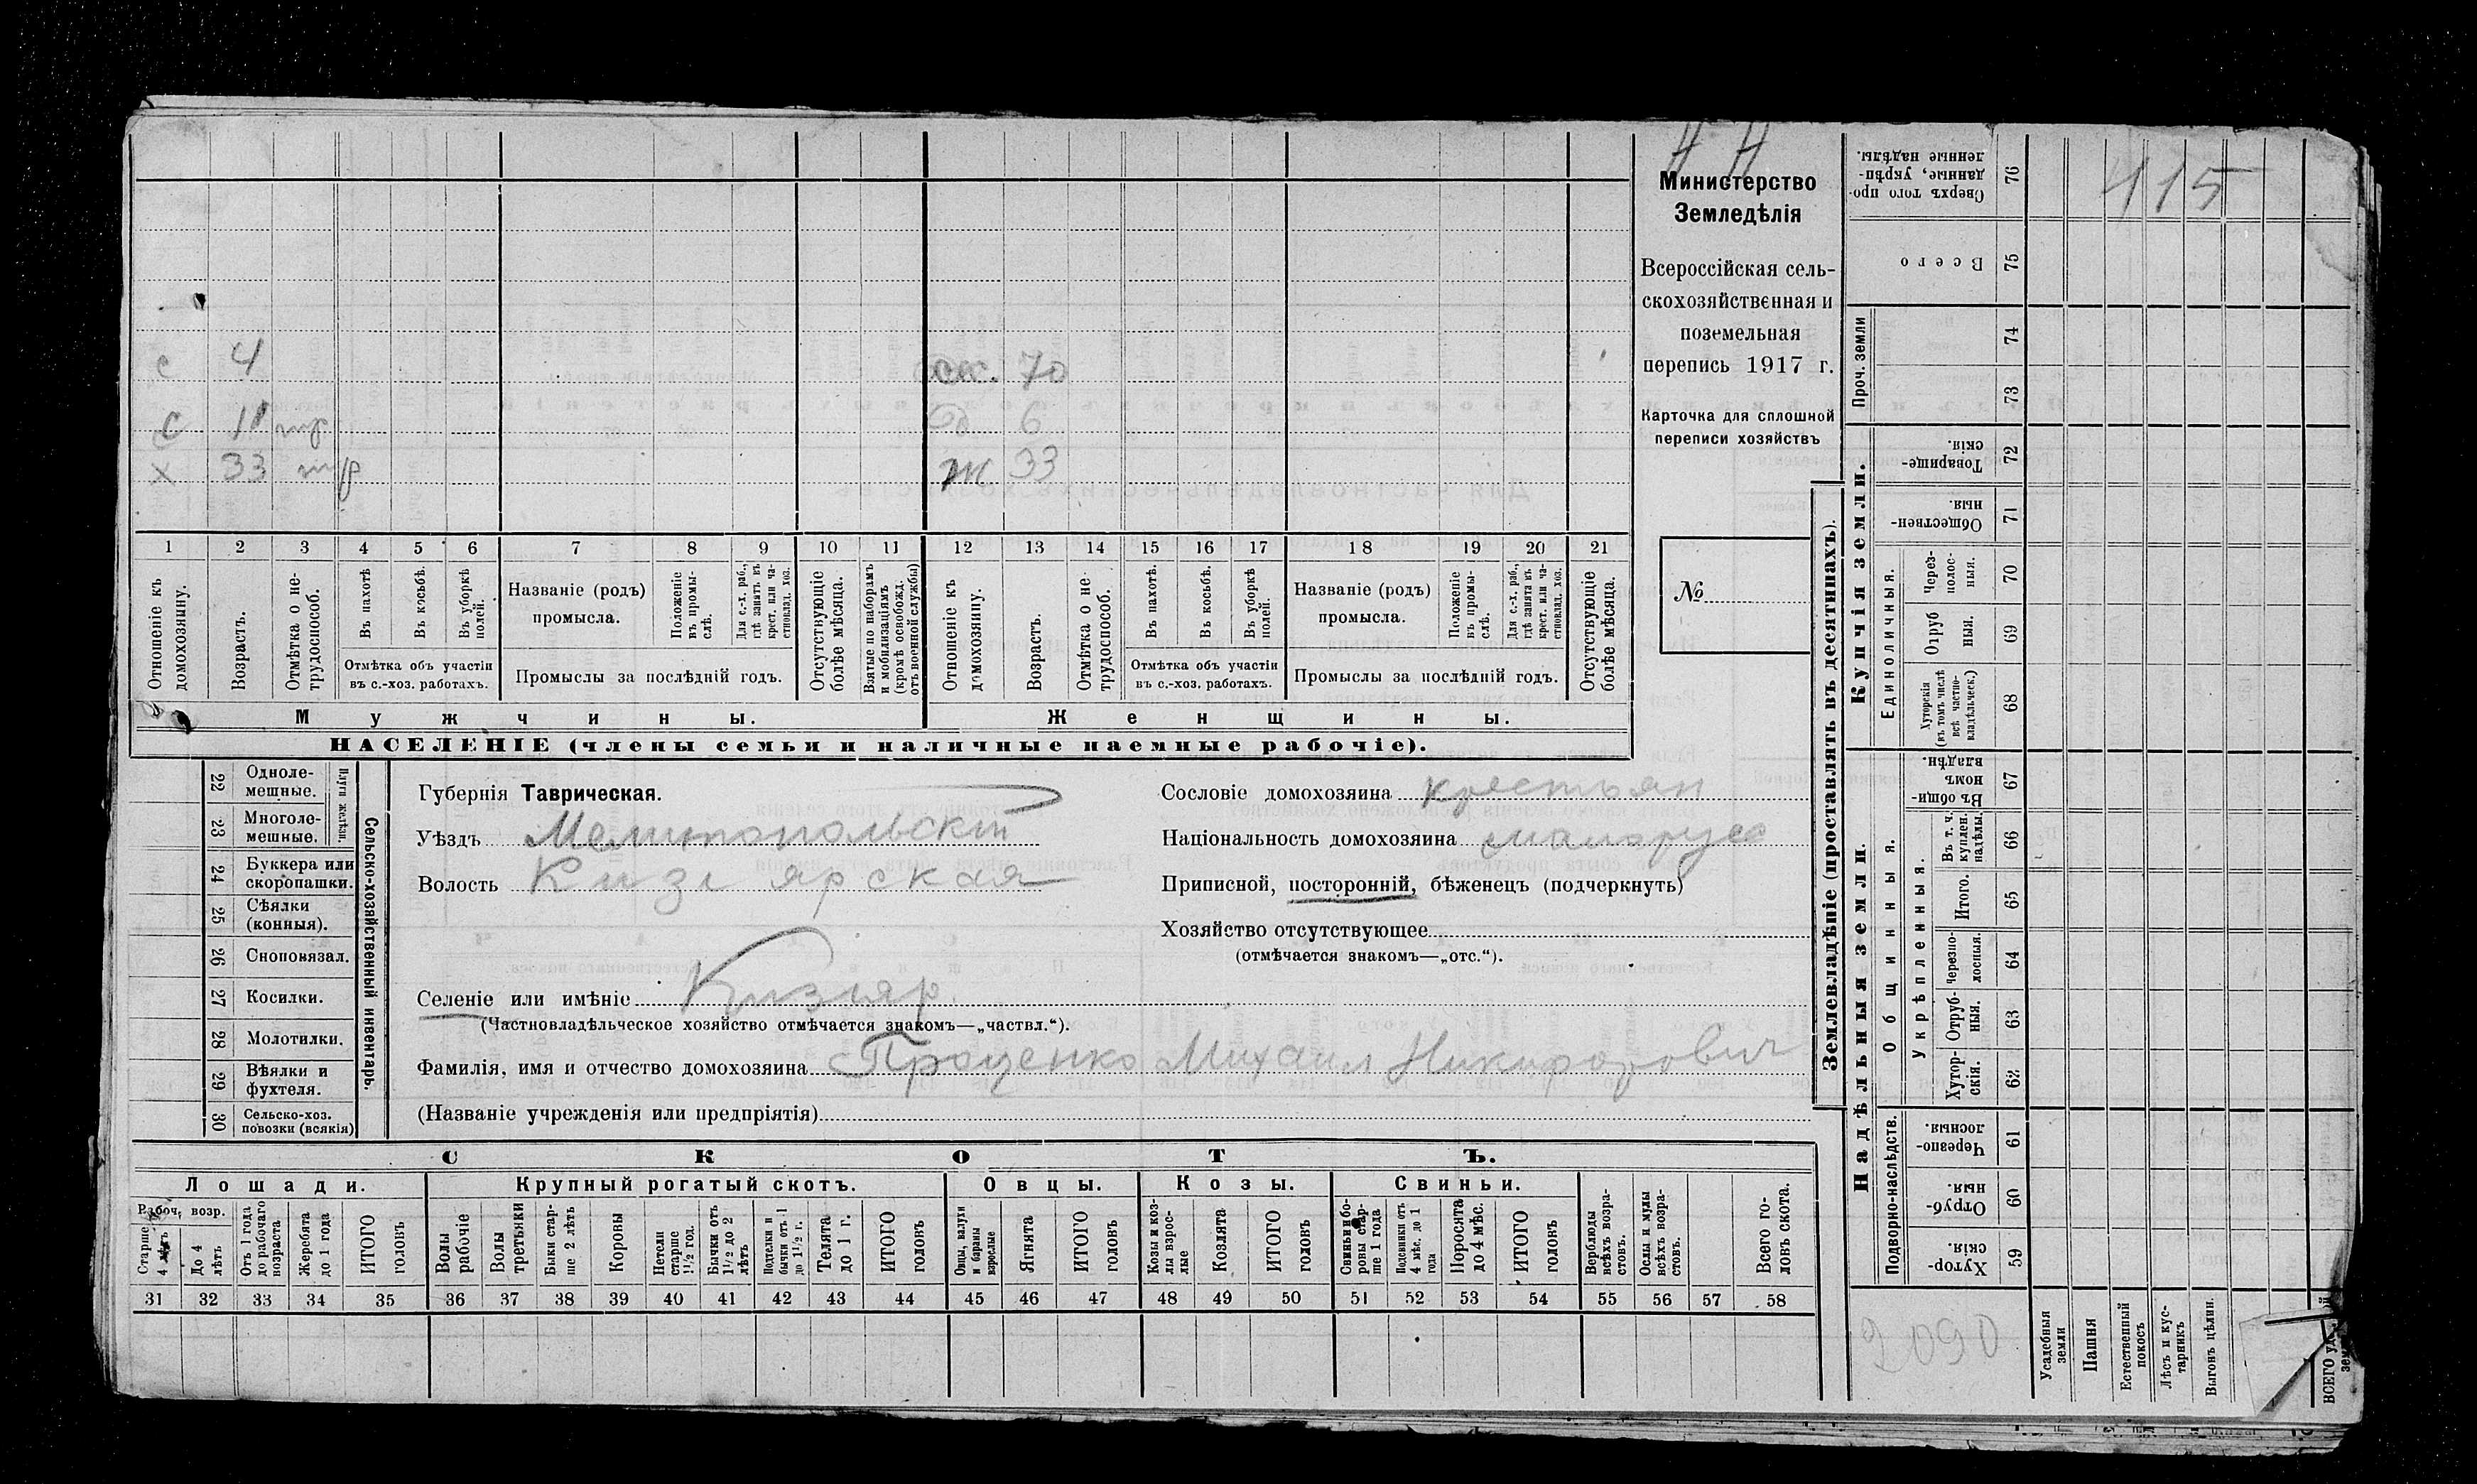 Н Н
Министерство
Земледѣлія
Всероссійская сель-
скохозяйственная и
поземельная
перепись 1917 г.
Карточка для сплошной
переписи хозяйствъ
№
415
с 4
с 11 тр
х 33 тр
70
д 6
ж 33
1 2 3 4 5 6 7 8 9 10 11 12 13 14 15 16 17 18 19 20 21
Отношеніе къ домохозяину.
Возрастъ.
Отмѣтка о не-трудоспособ.
Въ пахотѣ
Въ косьбѣ.
Въ уборкѣ полей.
Отмѣтка объ участіи
въ с.-хоз. работахъ.
Названіе (родъ)
промысла.
Положеніе въ промы-слѣ.
Для с.-х. раб., гдѣ занятъ въ крест. или ча-стновлад. хоз.
Промыслы за послѣдній годъ.
Отсутствующіе болѣе мѣсяца.
Взятые по наборамъ и мобилизаціямъ (кромѣ освобожд. отъ военной службы)
Отношеніе къ домохозяину.
Возрастъ.
Отмѣтка о не-трудоспособ.
Въ пахотѣ.
Въ косьбѣ.
Въ уборкѣ полей.
Отмѣтка объ участіи
въ с.-хоз. работахъ.
Названіе (родъ)
промысла.
Положеніе въ промы-слѣ.
Для с.-х. раб., гдѣ занята въ крест. или ча-стновлад. хоз.
Промыслы за послѣдній годъ.
Отсутствующіе болѣе мѣсяца.
Мужчины.
Женщины.
НАСЕЛЕНІЕ (члены семьи и наличные наемные рабочіе).
Сельско-хозяйственный инвентарь.
Плуги желѣзн.
22 Одноле-мешные.
23 Многоле-мешные.
24 Буккера или скоропашки.
25 Сѣялки (конныя).
26 Сноповязал.
27 Косилки.
28 Молотилки.
29 Вѣялки и фухтеля.
30 Сельско-хоз. повозки (всякія)
Губернія Таврическая.
Уѣздъ Мелитопольскій
Волость Кизіярская
Сословіе домохозяина крестьян
Національность домохозяина малорусс
Приписной, посторонній, бѣженецъ (подчеркнуть)
Хозяйство отсутствующее
(отмѣчается знакомъ—„отс.“).
Селеніе или имѣніе Кизіяр.
(Частновладѣльческое хозяйство отмѣчается знакомъ—„частвл.“).
Фамилія, имя и отчество домохозяина Проценко Михаил Никифорович
(Названіе учрежденія или предпріятія)
СКОТЪ.
Лошади.
Крупный рогатый скотъ.
Овцы.
Козы.
Свиньи.
Рабоч. возр.
Старше 4 лѣтъ
До 4 лѣтъ
Отъ 1 года до рабочаго возраста
Жеребята до 1 года
ИТОГО головъ
Волы рабочіе
Волы третьяки
Быки стар-ше 2 лѣтъ
Коровы
Нетели старше 1½ год.
Бычки отъ 1½ до 2 лѣтъ
Подтелки и бычки отъ 1 до 1½ г.
Телята до 1 г.
ИТОГО головъ
Овцы, валухи и бараны взрослые
Ягнята
ИТОГО головъ
Козы и коз-лы взрос-лые
Козлята
ИТОГО головъ
Свиньи и бо-ровы стар-ше 1 года
Подсвинки отъ 4 мѣс. до 1 года
Поросята до 4 мѣс.
ИТОГО головъ
Верблюды всѣхъ возра-стовъ.
Ослы и мулы всѣхъ возра-стовъ.
Всего го-ловъ скота.
31 32 33 34 35 36 37 38 39 40 41 42 43 44 45 46 47 48 49 50 51 52 53 54 55 56 57 58
Землевладѣніе (проставлять въ десятинахъ).
Купчія земли.
Надѣльныя земли.
Сверхъ того про-данные, укрѣп-ленные надѣлы. 76
Всего 75
Проч. земли 74
73
Товарище-скія. 72
Обществен-ныя. 71
Единоличныя.
Через-полос-ныя. 70
Отруб ныя. 69
Хуторскія (въ томъ числѣ всѣ частно-владѣльческ.) 68
Общинныя.
Въ общи-номъ владѣн. 67
Укрѣпленныя.
Въ т. ч. куплен. надѣлы. 66
Итого. 65
Черезпо-лосныя. 64
Отруб-ныя. 63
Хутор-скія. 62
Подворно-наслѣдств.
Черезпо-лосныя. 61
Отруб-ныя. 60
Хутор-скія. 59
2090
Усадебныя земли
Пашня
Естественный покосъ
Лѣсъ и кус-тарникъ
Выгонъ цѣлин.
ВСЕГО